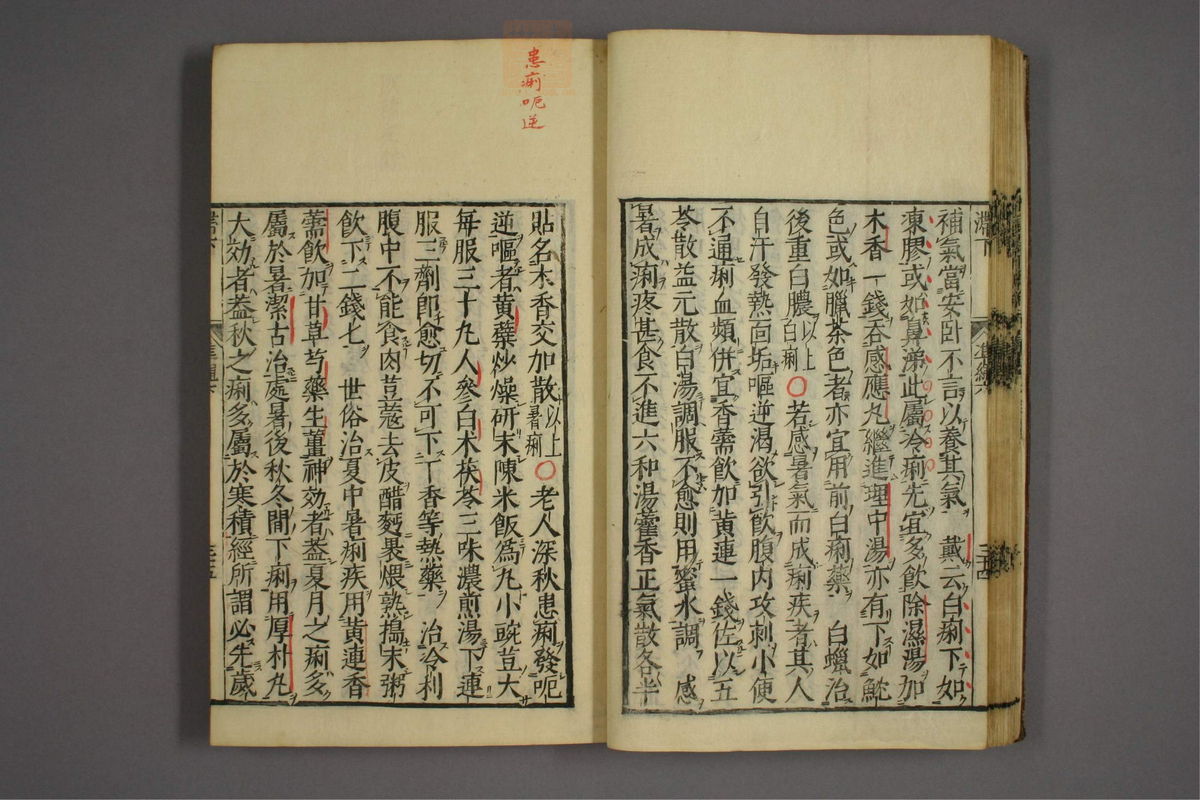 補氣當安臥不言以養其氣 戴云白痢下如
凍膠或如鼻涕此屬冷痢先宜多飲除濕湯加
木香一錢吞感應丸繼進理中湯亦有下如鮀
色或如臘茶色者亦宜用前白痢藥 白蠟治
後重白膿以上白痢○若感暑氣而成痢疾者其人
自汗發熱面垢嘔逆渴欲引飲腹內攻刺小便
不通痢血頻併宜香薷飲加黃連一錢佐以五
苓散益元散白湯調服不愈則用蜜水調 感
暑成痢疼甚食不進六和湯藿香正氣散各半
貼名木香交加散以上暑痢○老人深秋患痢發呃
逆嘔者黃蘗炒燥研末陳米飯為丸小豌豆大
每服三十丸人參白朮茯苓三味濃煎湯下連
服三劑即愈切不可下丁香等熱藥 治冷利
腹中不能食肉荳蔻去皮醋麪裹煨熟搗末粥
飲下二錢七 世俗治夏中暑痢疾用黃連香
薷飲加甘草芍藥生薑神效者蓋夏月之痢多
屬於暑潔古治處暑後秋冬間下痢用厚朴丸
大効者蓋秋之痢多屬於寒積經所謂必先歲
患痢呃逆